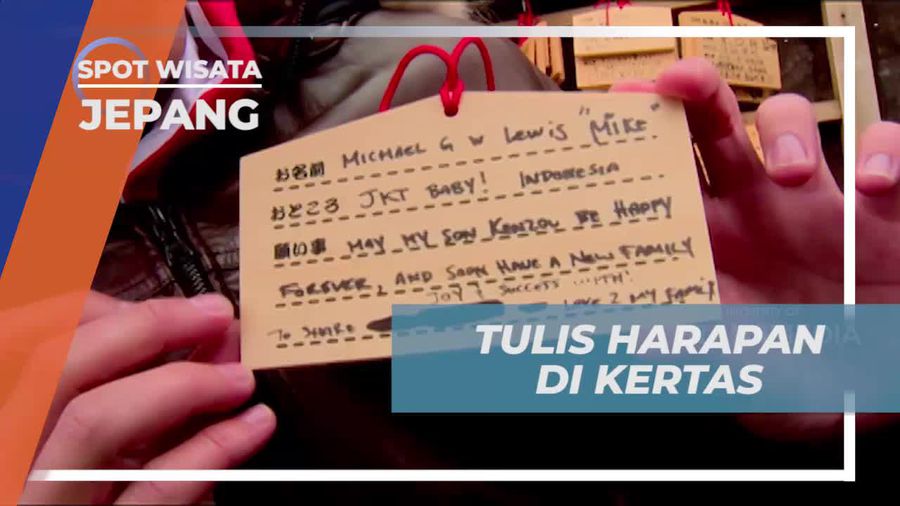 SPOT WISATA
JEPANG
お名前 MICHAEL G W Lewis "MIKE"
おところ JKT BABY! INDONESIA
願い事 MAY MY SON KENZOU BE HAPPY
FOREVER, AND SOON HAVE A NEW FAMILY
TO SHARE JOY & SUCCESS WITH! LOVE 2 MY FAMILY
TULIS HARAPAN
DI KERTAS